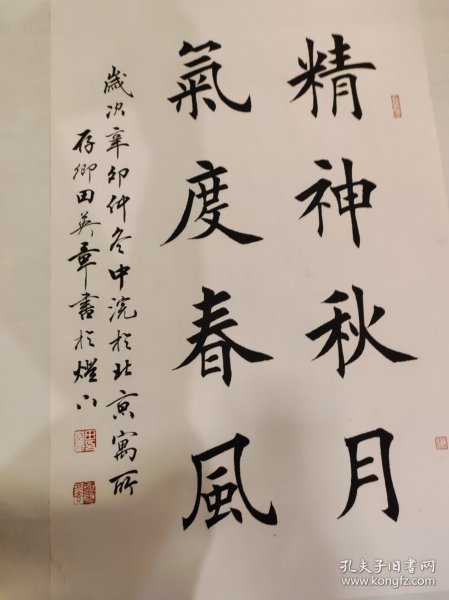 精神秋月
氣度春風
歲次辛卯仲冬中浣於北京寓所
存卿田英章書於燈下
孔夫子旧书网
www.kongfz.com